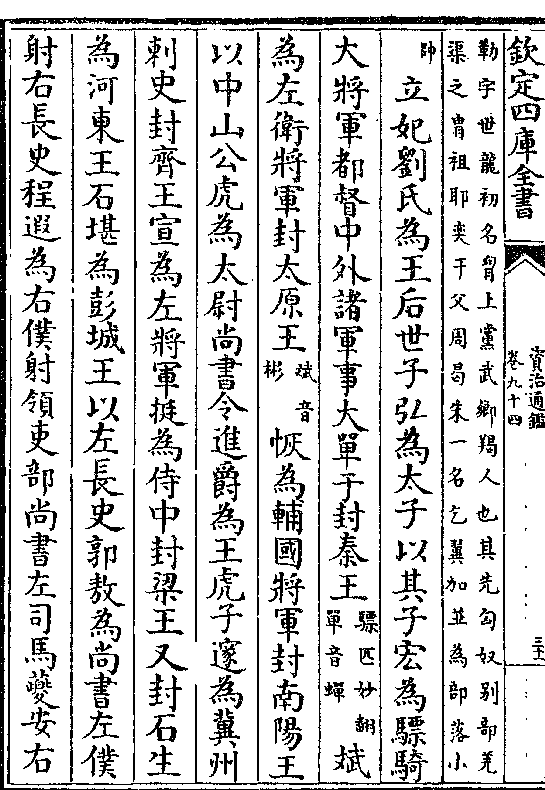 欽定四庫全書
資治通鑑
卷九十四
三十
勒字世龍初名㔨上黨武鄉羯人也其先匈奴别部羌
渠之胄祖耶奕于父周曷朱一名乞翼加並為部落小
帥立妃劉氏為王后世子弘為太子以其子宏為驃騎
大將軍都督中外諸軍事大單于封秦王驃匹妙翻單音蟬斌
為左衛將軍封太原王斌音彬恢為輔國將軍封南陽王
以中山公虎為太尉尚書令進爵為王虎子邃為冀州
刺史封齊王宣為左將軍挺為侍中封梁王又封石生
為河東王石堪為彭城王以左長史郭敖為尚書左僕
射右長史程遐為右僕射領吏部尚書左司馬夔安右